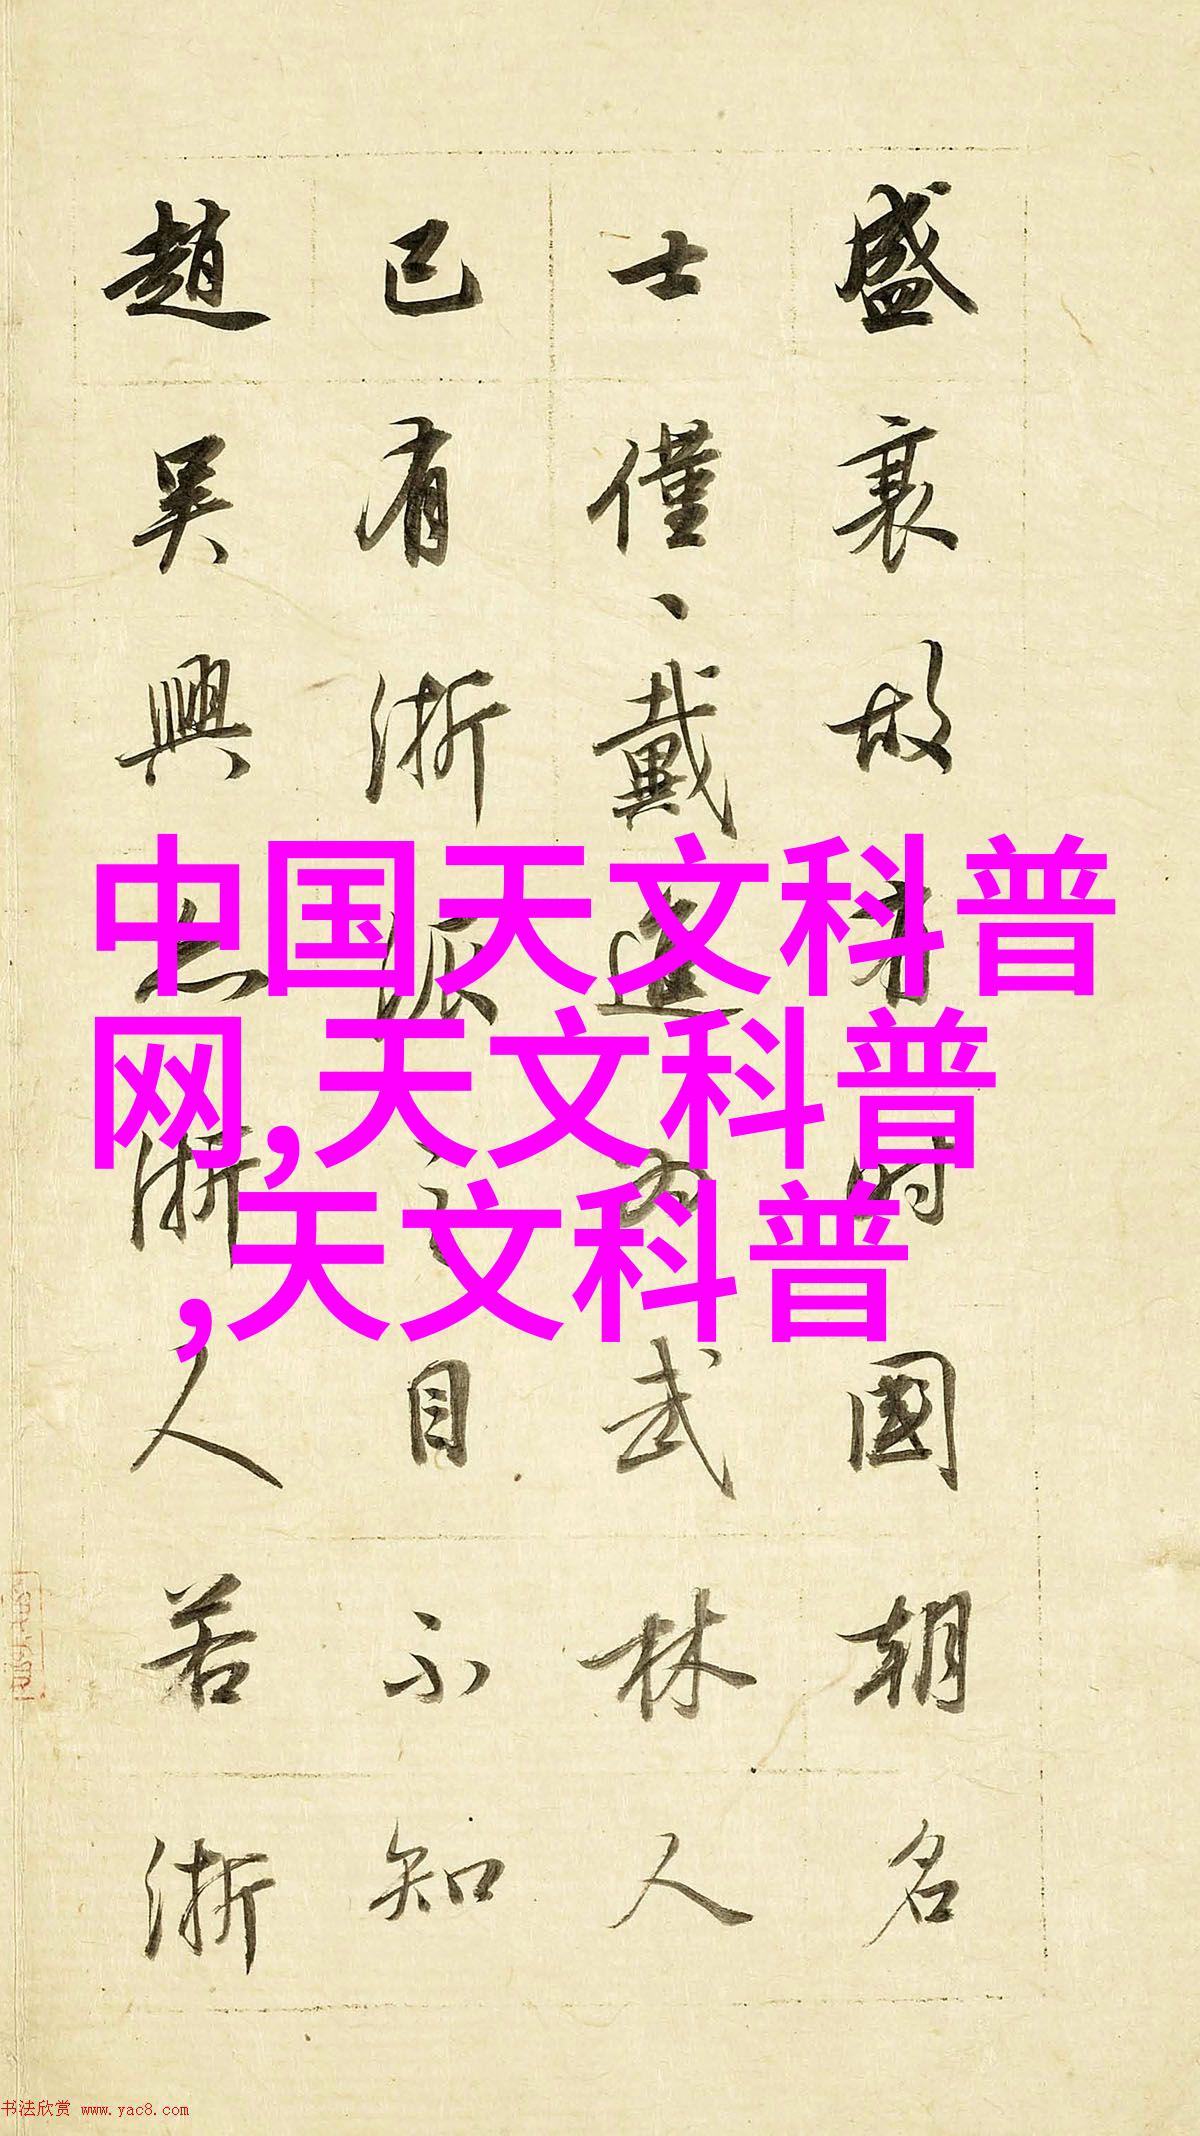 盛衰故有時國朝名
士僅、戴進為武林人
已有浙派之目不知
趙吳興亦浙人若浙
中国天文科普
网,天文科普
,天文科普
书法欣赏 www.yac8.com